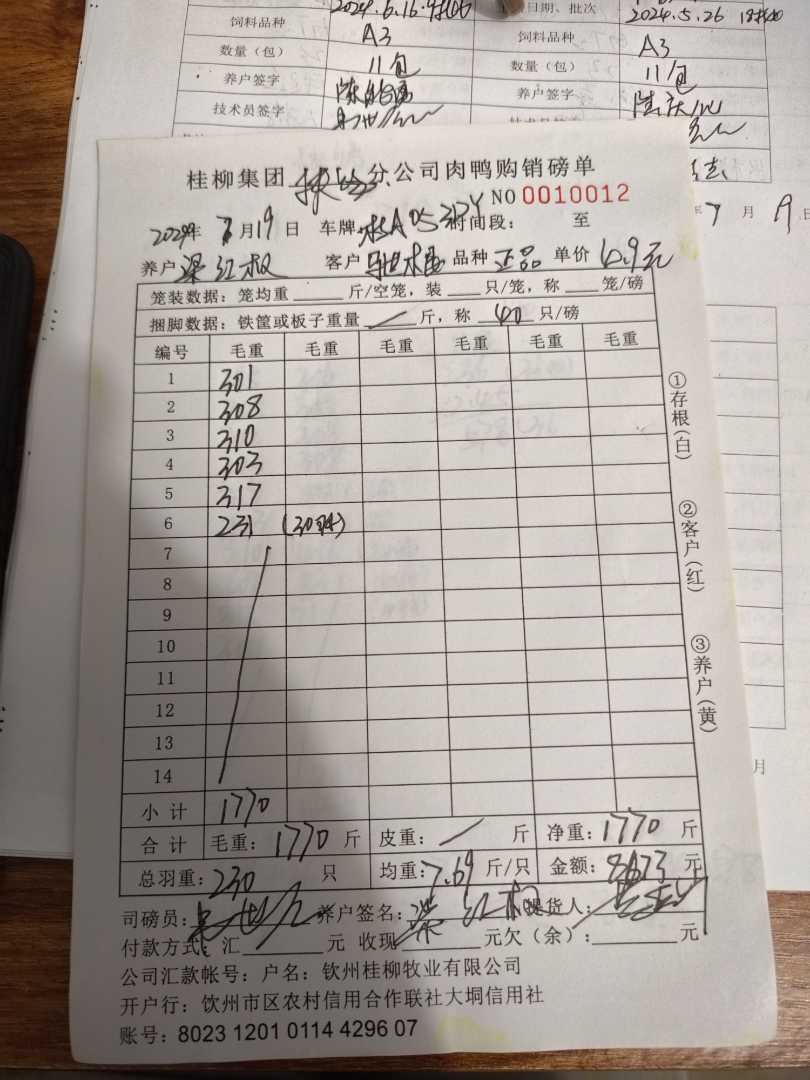 2024.6.16
日期、批次
2024.5.26
饲料品种 A3 饲料品种 A3
数量（包） 11包 数量（包） 11包
养户签字 养户签字
技术员签字
桂柳集团 分公司肉鸭购销磅单
NO 0010012
2024年 7月19日 车牌 时间段： 至
养户 梁红权 客户 品种 正品 单价 4.9元
笼装数据：笼均重 斤/空笼，装 只/笼，称 笼/磅
捆脚数据：铁筐或板子重量 / 斤，称 40 只/磅
编号 毛重 毛重 毛重 毛重 毛重
1 301
2 308
3 310
4 303
5 317
6 231 (30只)
7
8
9
10
11
12
13
14
小计 1770
合计 毛重：1770斤 皮重：/ 斤 净重：1770斤
总羽重：230 只 均重：7.69 斤/只 金额：8673元
司磅员： 养户签名：梁红权 提货人：
付款方式：汇 元 收现 元欠（余）： 元
公司汇款帐号：户名：钦州桂柳牧业有限公司
开户行：钦州市区农村信用合作联社大垌信用社
账号：8023 1201 0114 4296 07
①存根(白)
②客户(红)
③养户(黄)
年 7 月 19 日
月